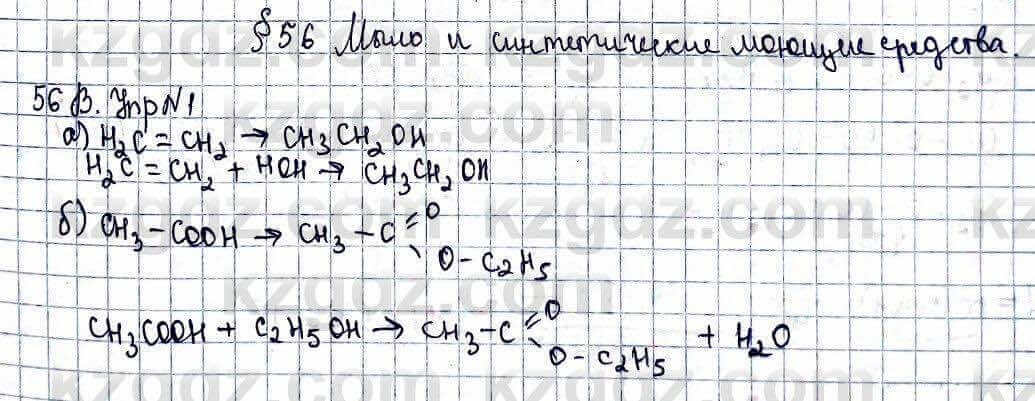 §56 Мыло и синтетические моющие средства.
56 В. Упр N1
а) H₂C = CH₂ → CH₃CH₂OH
H₂C = CH₂ + HOH → CH₃CH₂OH
б) CH₃ – COOH → CH₃ – C = O
O – C₂H₅
CH₃COOH + C₂H₅OH → CH₃ – C = O + H₂O
O – C₂H₅
kzgdz.com